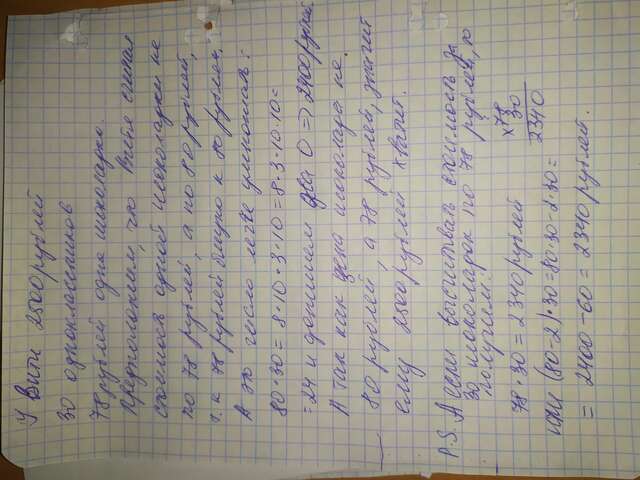 У Вити 2500 рублей
30 одноклассников
78 рублей одна шоколадка.
Предположим, что Витя считал
стоимость одной шоколадки не
по 78 рублей, а по 80 рублей,
т.к 78 рублей близко к 80 рублям.
А это число легче умножать:
80·30=8·10·3·10=8·3·10·10=
=24 и допишем два 0 => 2400 рублей
А так как цена шоколада не
80 рублей, а 78 рублей, значит
ему 2500 рублей хватит.
P.S. А если высчитывать стоимость за
30 шоколадок по 78 рублей, то
получим:
78·30=2340 рублей
x78
30
2340
или (80-2)·30=80·30-2·30=
= 2400-60 = 2340 рублей.